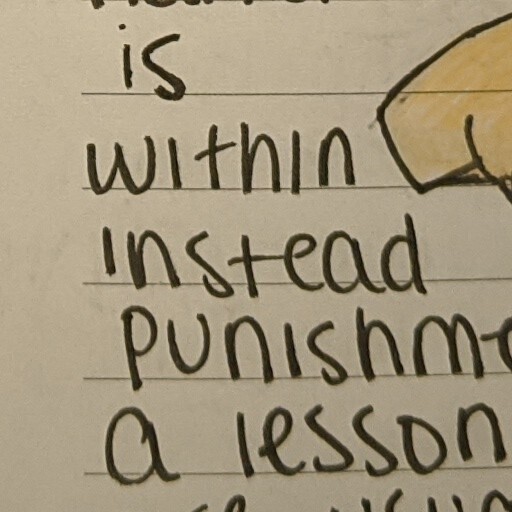 is
within
instead
punishm
a lesson